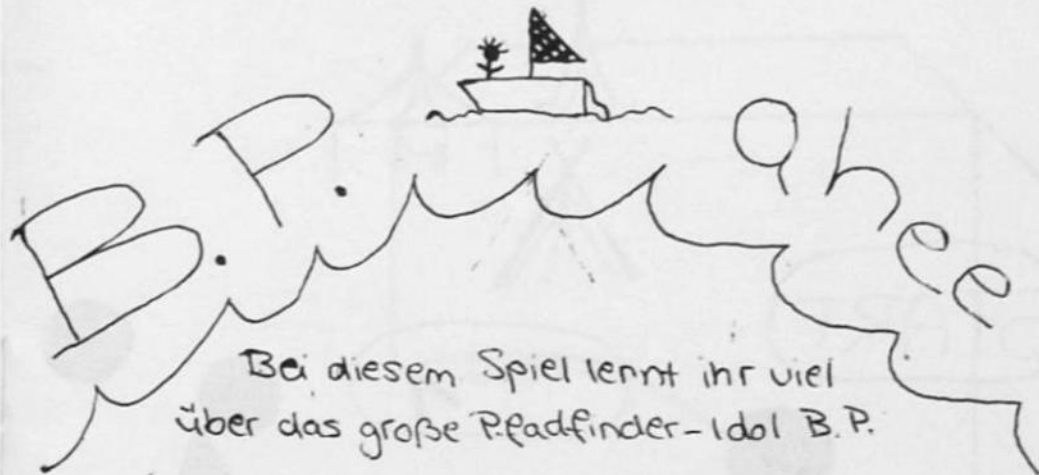 B.P. ahee
Bei diesem Spiel lernt ihr viel
über das große Pfadfinder-Idol B.P.